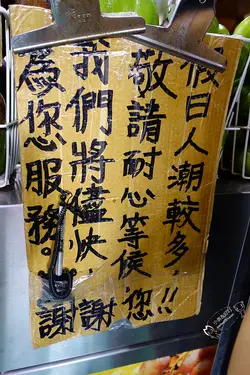 假日人潮較多,
敬請耐心等侯,
我們將儘快,
為您服務。
謝謝您!!